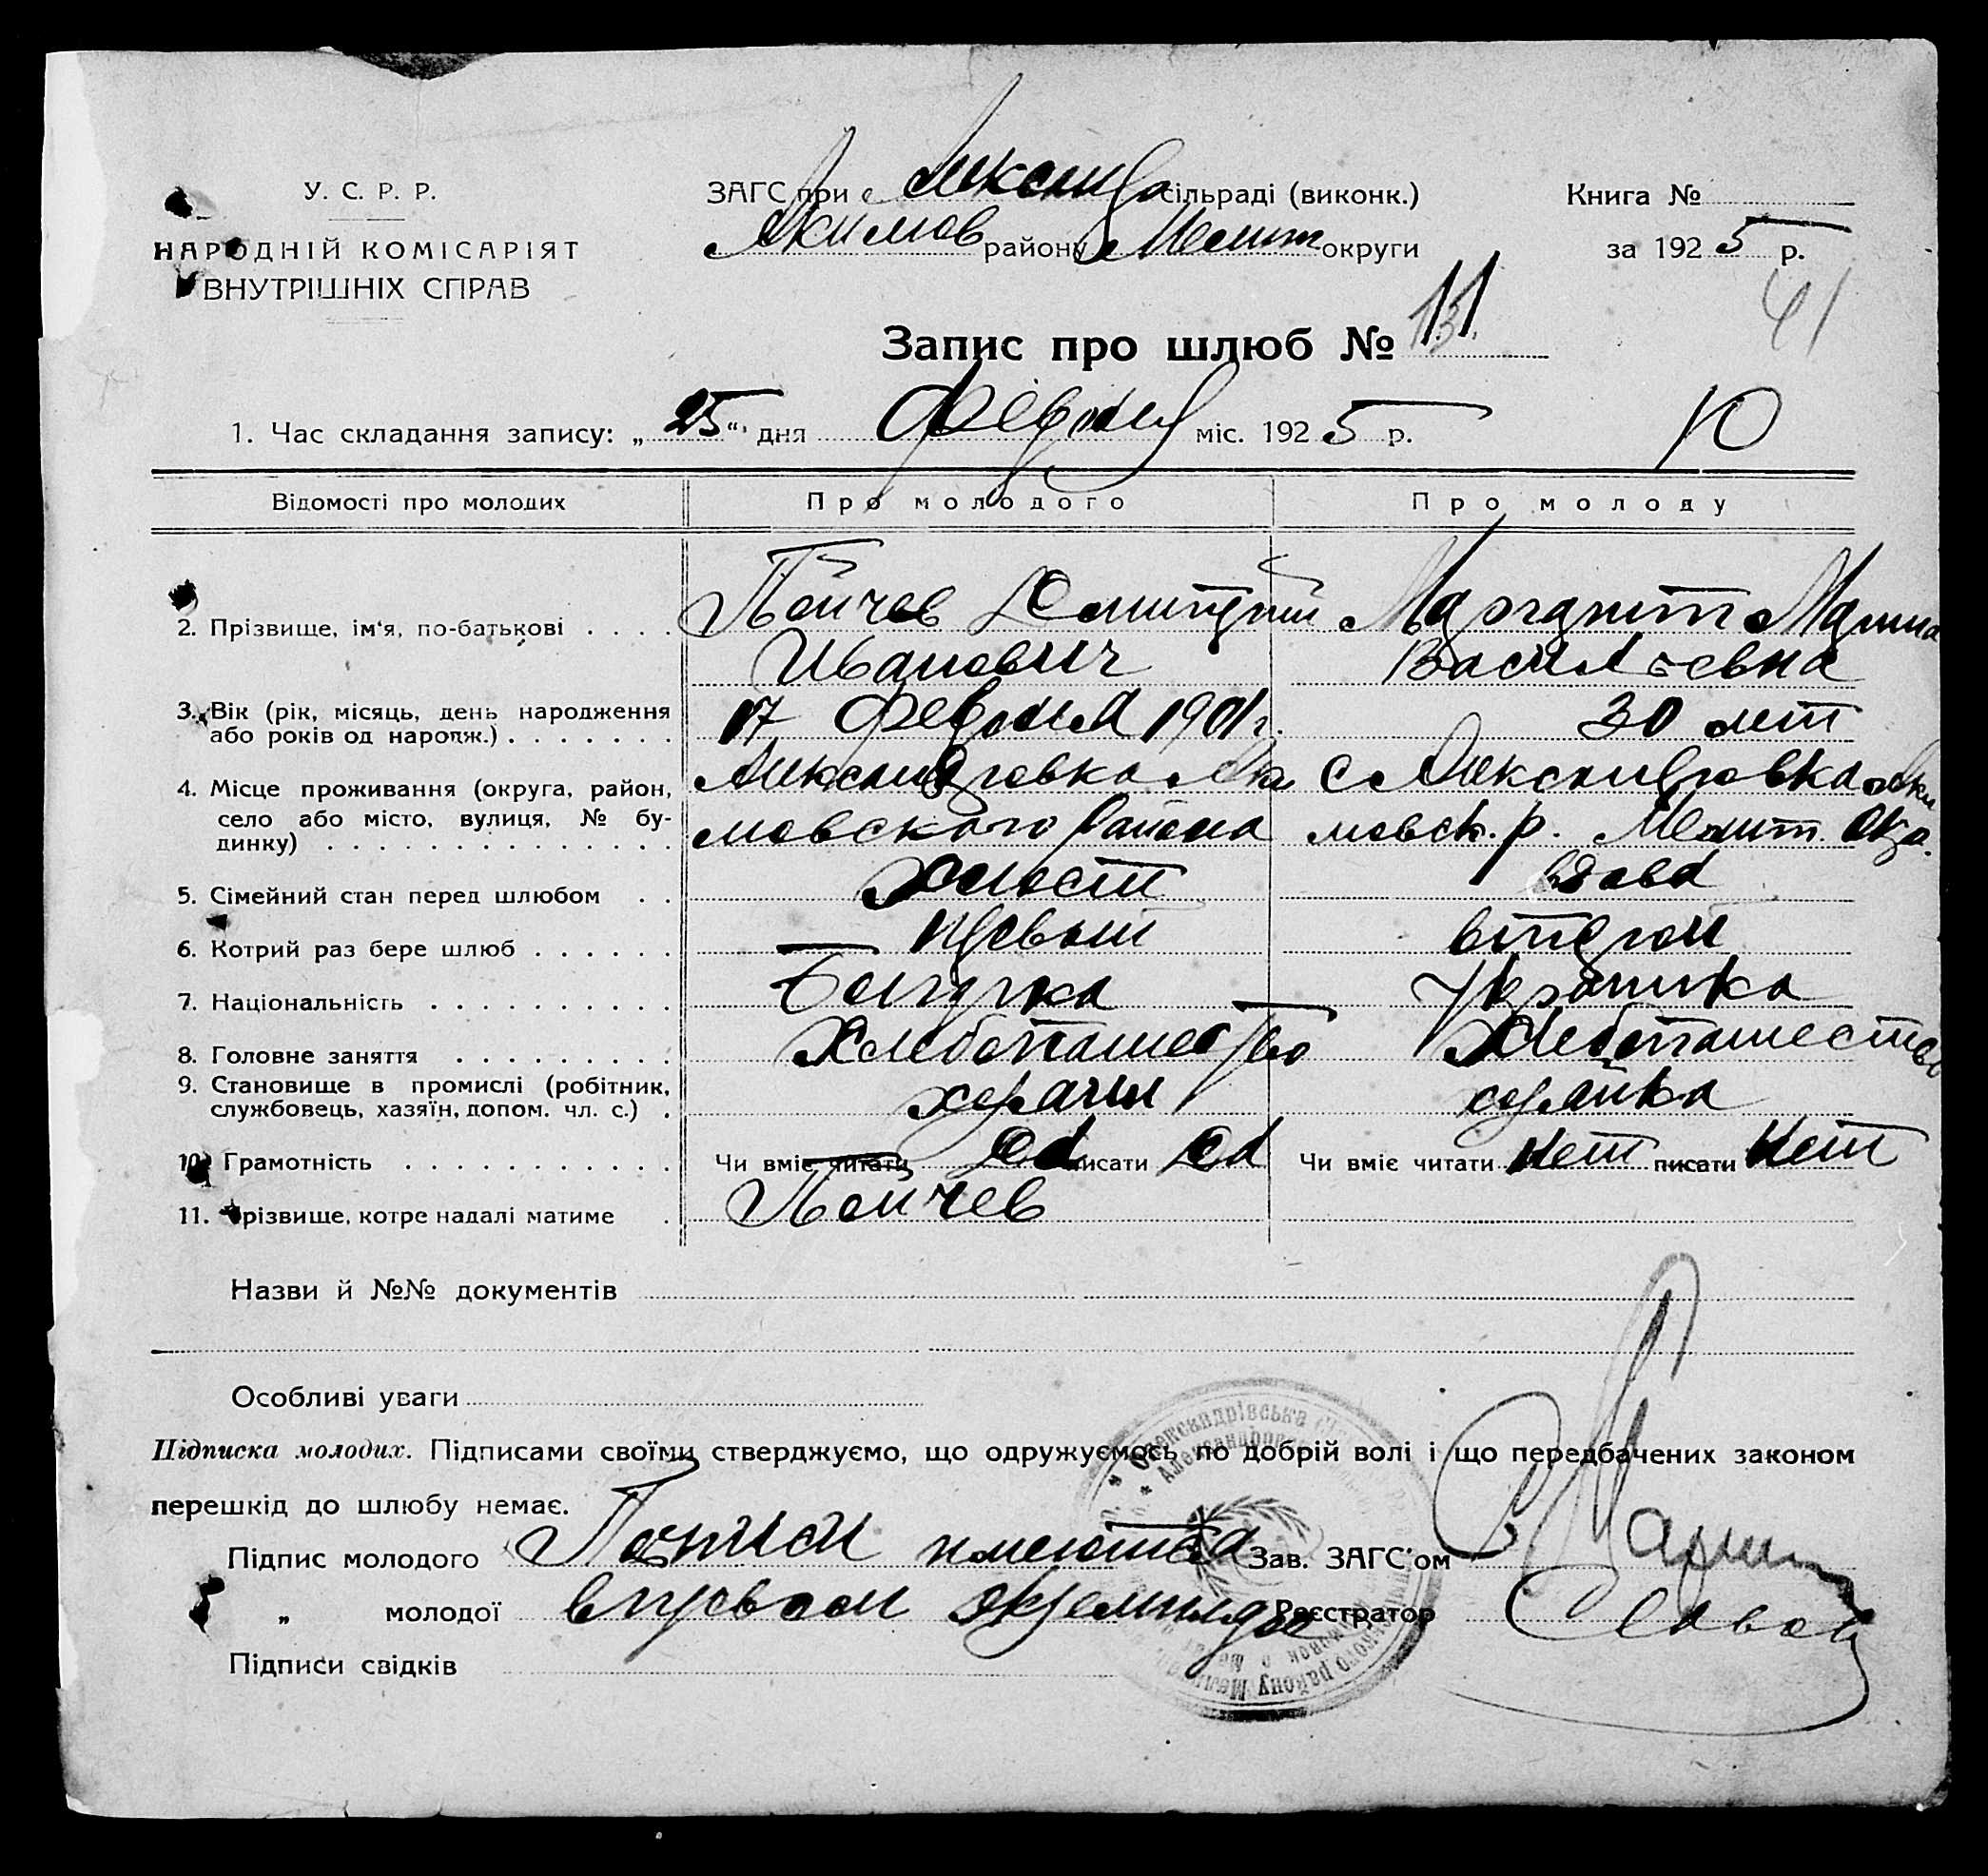 У. С. Р. Р.
НАРОДНІЙ КОМІСАРІЯТ
ВНУТРІШНІХ СПРАВ
ЗАГС при с Александ сільраді (виконк.)
Акимов району Мелит округи
Книга №
за 1925 р.
41
Запис про шлюб № 11
1. Час складання запису: „25“ дня Февраля міс. 1925 р.
Ю
Відомості про молодих Про молодого Про молоду
2. Прізвище, ім'я, по-батькові . . . . Пейчев Дмитрий Маргарит Марина
Иванович Васильевна
3. Вік (рік, місяць, день народження
або років од народж.) . . . . . . . 17 Февраля 1901 г. 30 лет
4. Місце проживання (округа, район,
село або місто, вулиця, № бу-
динку) . . . . . . . . . . . . . .
Александровка Аки с Александровка Аки
мовского района мовск. р. Мелит. окр.
5. Сімейний стан перед шлюбом . . Холост вдова
6. Котрий раз бере шлюб . . . . . . первый второй
7. Національність . . . . . . . . . . Болгарка Украинка
8. Головне заняття . . . . . . . . . Хлебопашество Хлебопашество
9. Становище в промислі (робітник,
службовець, хазяїн, допом. чл. с.) . хозяин хозяйка
10. Грамотність . . . . . . . . . . . Чи вміє читати Да писати Да Чи вміє читати Нет писати Нет
11. Прізвище, котре надалі матиме . Пейчев
Назви й №№ документів
Особливі уваги
Підписка молодих. Підписами своїми стверджуємо, що одружуємось по добрій волі і що передбачених законом
перешкід до шлюбу немає.
Підпис молодого Подписи имеются Зав. ЗАГС'ом
„ молодої в первом экземпляре Реєстратор
Підписи свідків
Олександрівська